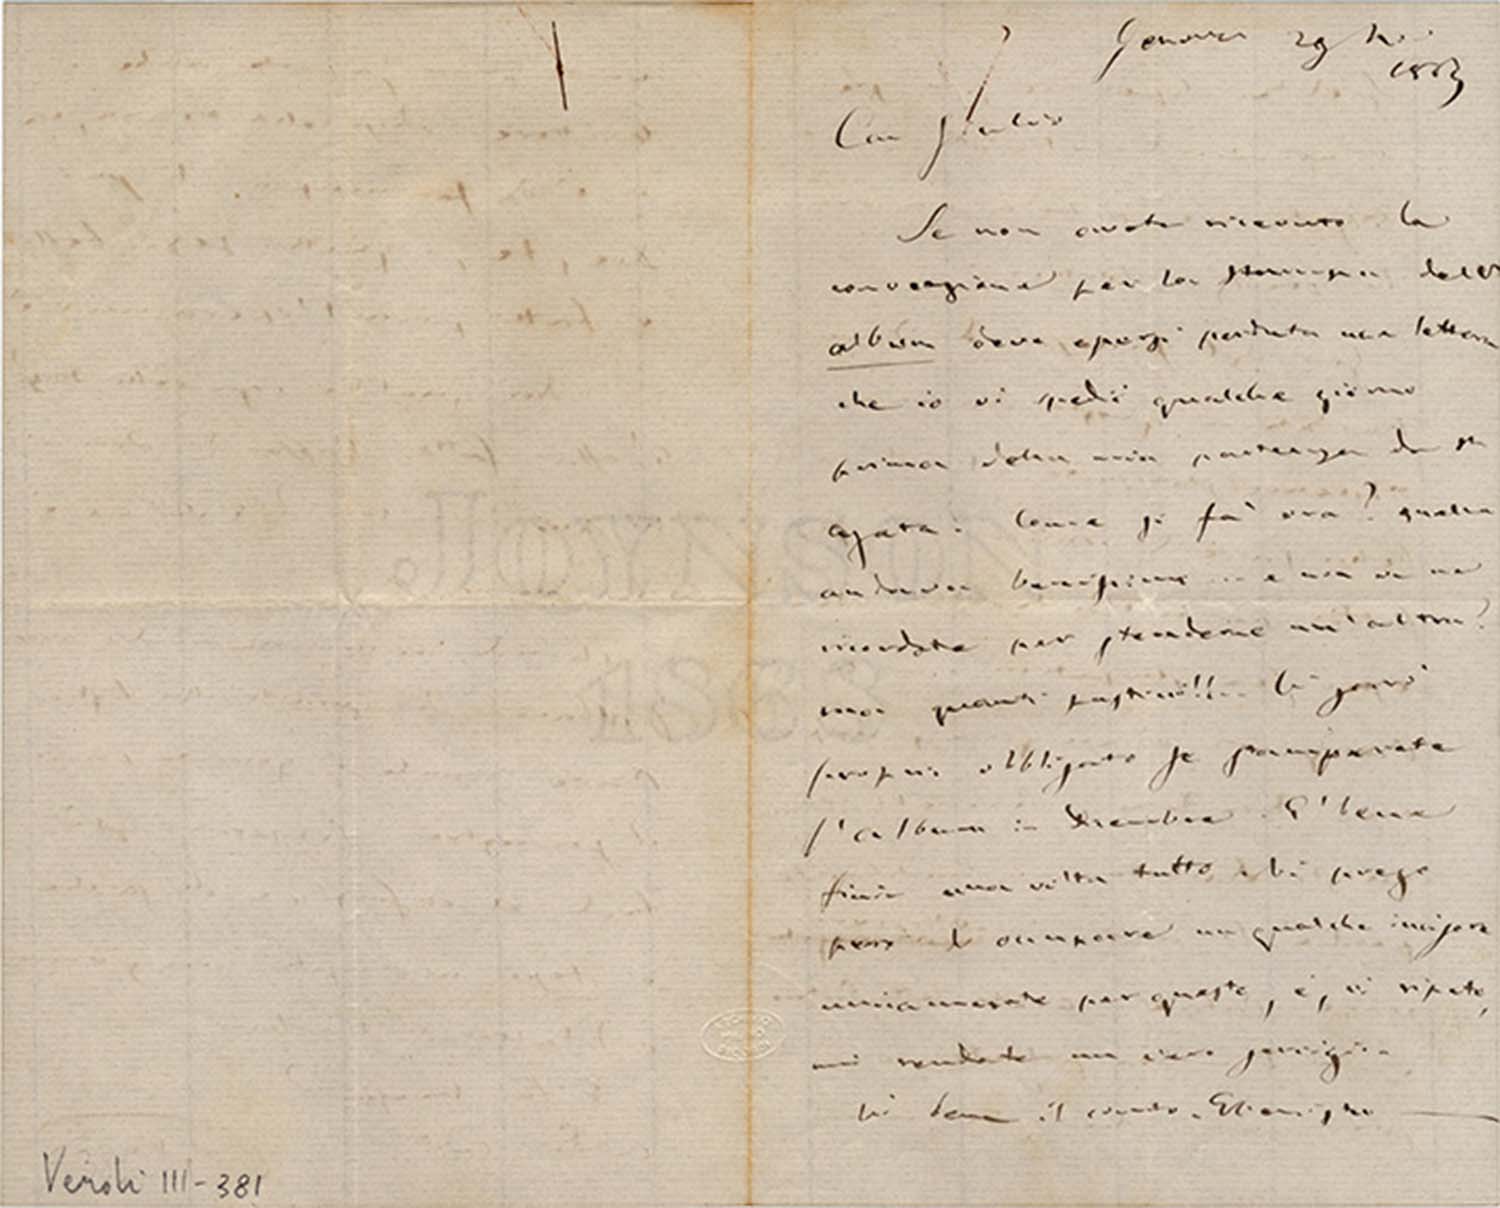 Genova 29 N..
1883
Car Giulio
Se non avete ricevuto la
convenzione per la stampa dell'
album deve essersi perduta una lettera
che io vi spedii qualche giorno
prima della mia partenza da St
Agata. Come si fa' ora? quella
andava benissimo .. e non ve ne
ricordate per stenderne un'altra?
ma quanti pasticci!! Vi sarò
proprio obbligato se stamperete
l'album in Dicembre. E' bene
finir una volta tutto. Vi prego
però d'occupare un qualche incisore
unicamente per questo, e, vi ripeto,
mi rendete un vero servizio.
Va bene il conto.
Veroli III-381